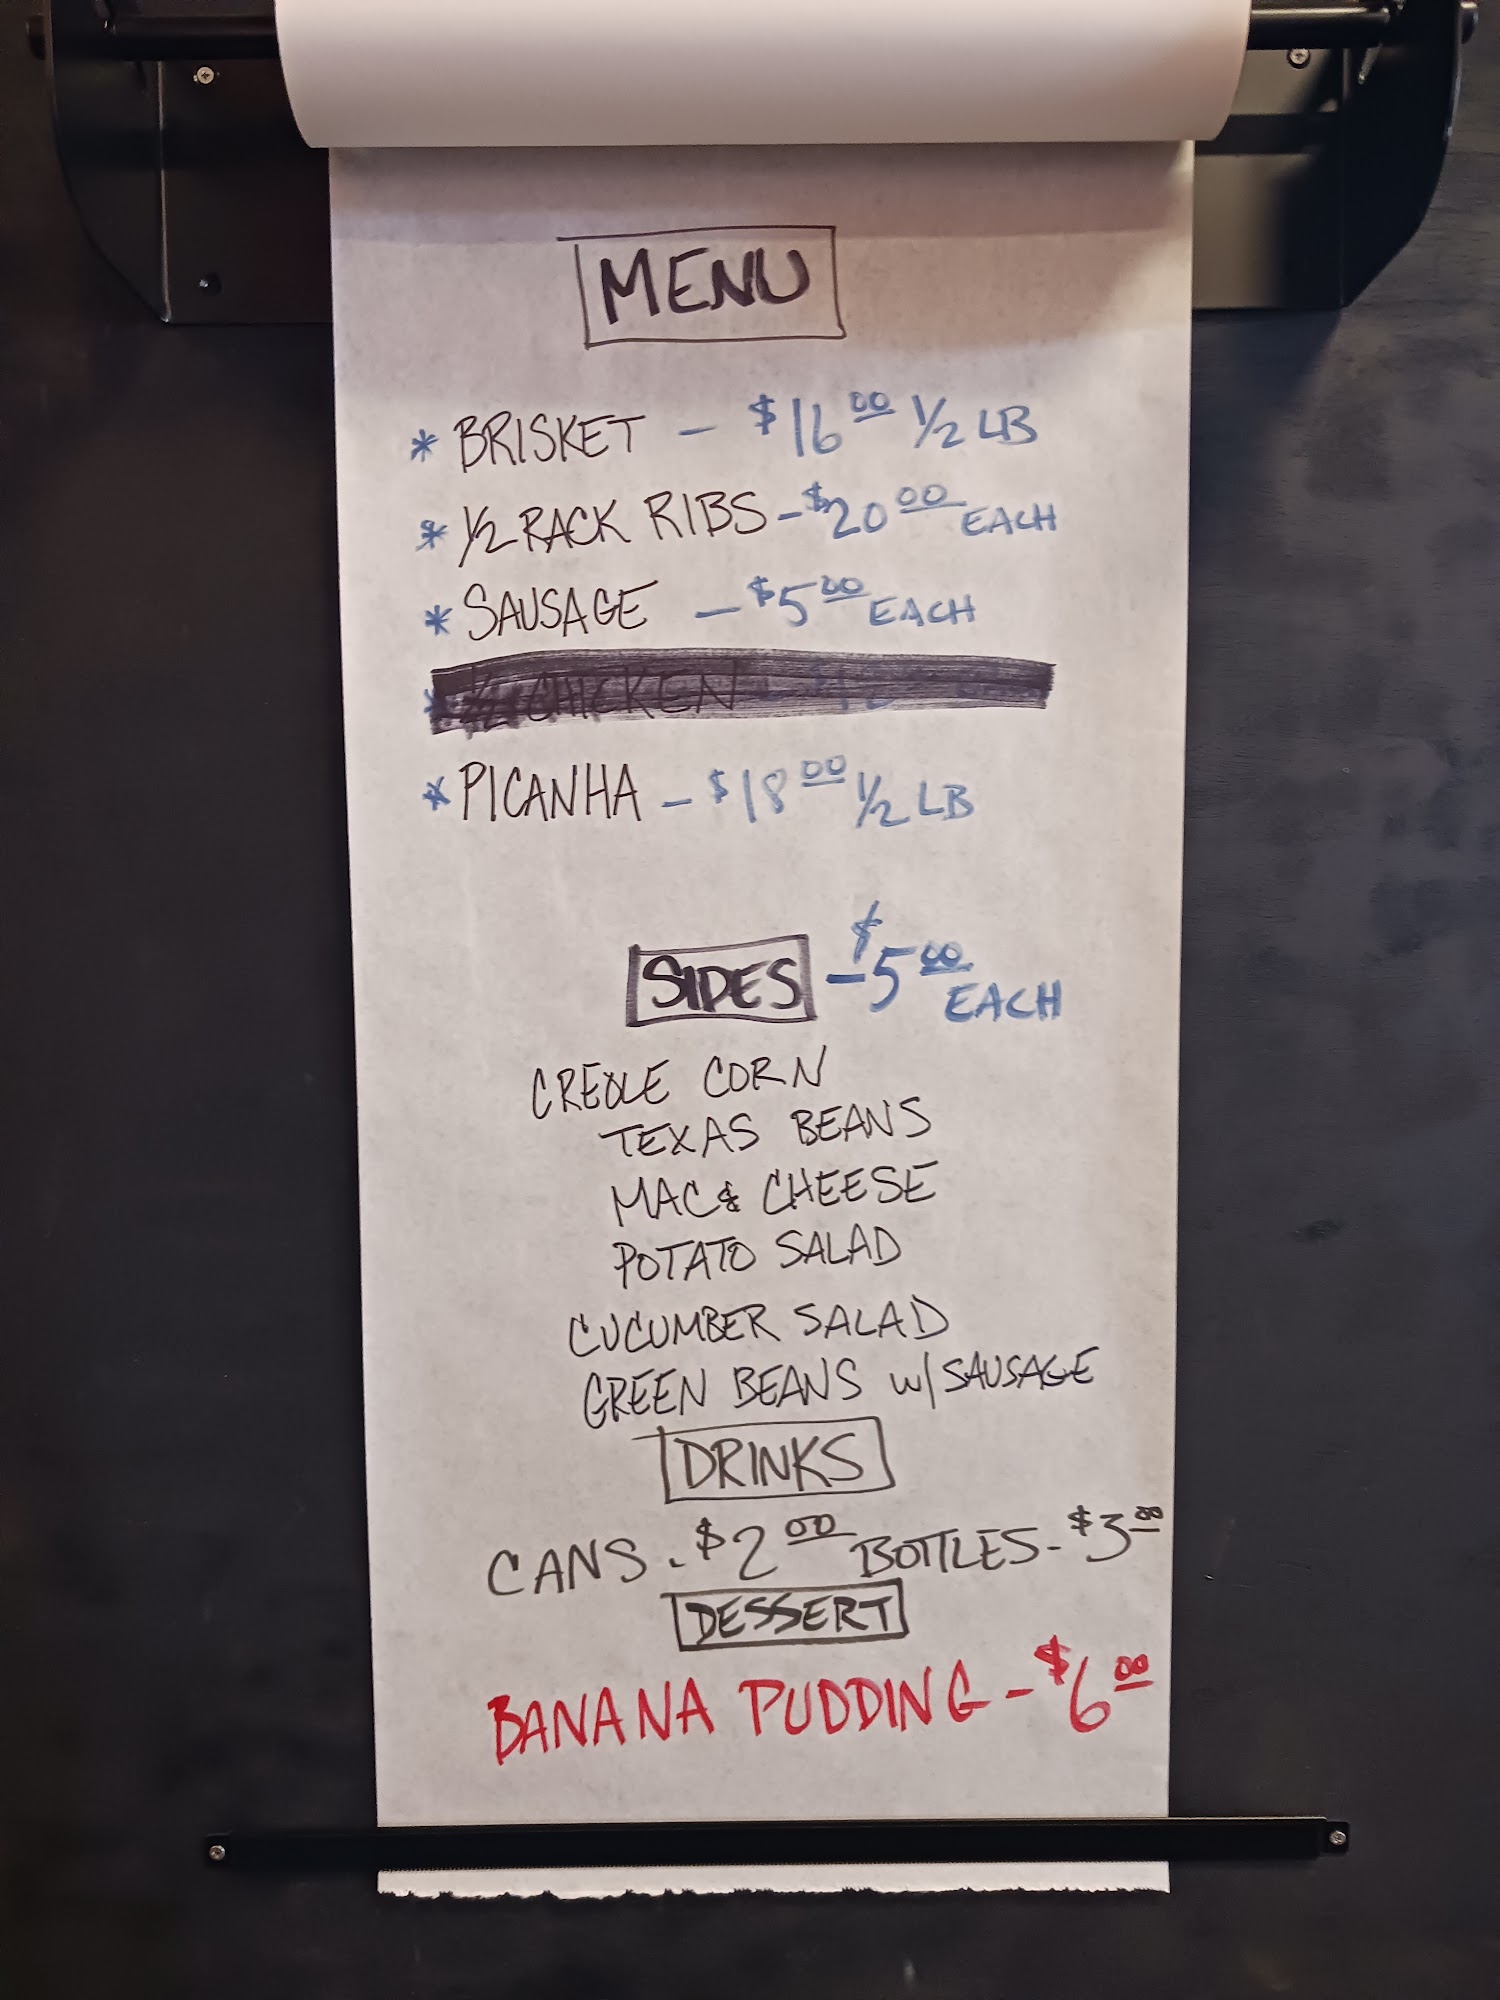 MENU
* BRISKET - $16.00 1/2 LB
* 1/2 RACK RIBS - $20.00 EACH
* SAUSAGE - $5.00 EACH
* 1/2 CHICKEN
* PICANHA - $18.00 1/2 LB
SIDES - $5.00 EACH
CREOLE CORN
TEXAS BEANS
MAC & CHEESE
POTATO SALAD
CUCUMBER SALAD
GREEN BEANS w/ SAUSAGE
DRINKS
CANS - $2.00 BOTTLES - $3.00
DESSERT
BANANA PUDDING - $6.00